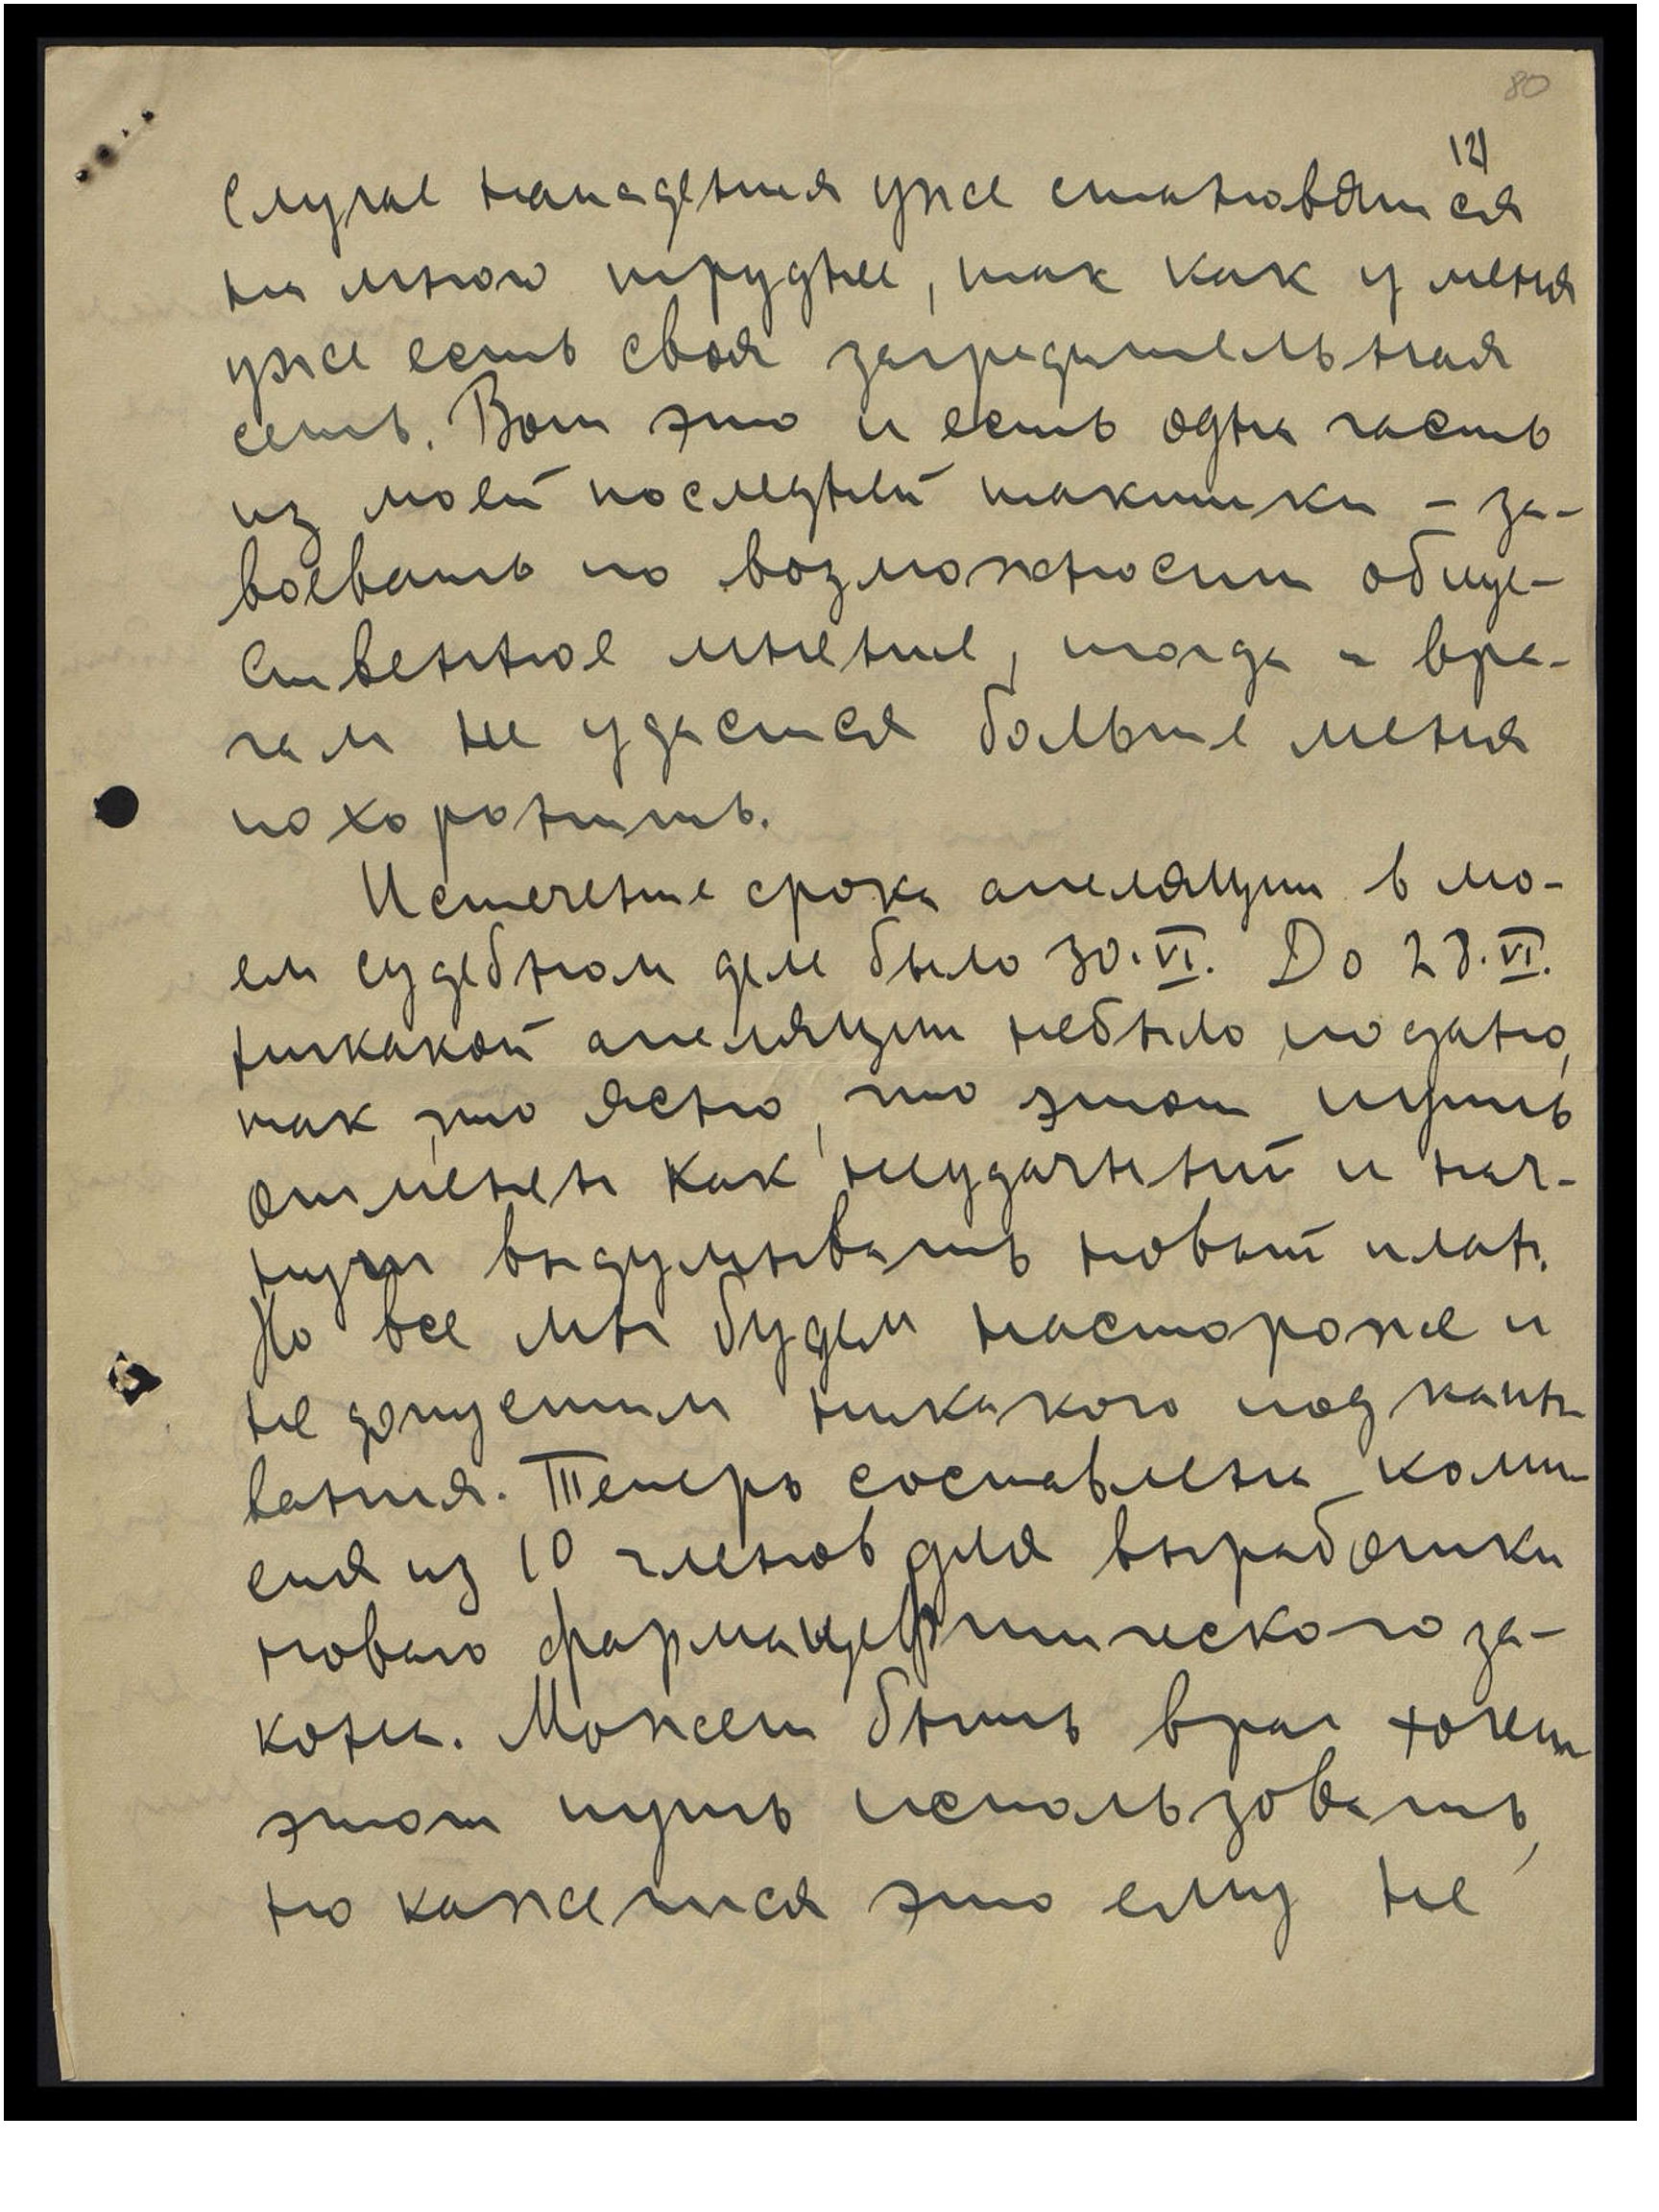 80
12)
случае нападения уже становятся
на много труднее, так как у меня
уже есть своя заградительная
сеть. Вот это и есть одна часть
из моей последней тактики – за-
воевать по возможности обще-
ственное мнение, тогда и вра-
гам не удастся больше меня
похоронить.
Истечение срока апеляции в мо-
ем судебном деле было 30.VI. До 28.VI.
никакой апеляции небыло подано,
так что ясно, что этот путь
отменен как неудачный и нач-
нут выдумывать новый план.
Но все мы будем настороже и
не допустим никакого подкапы-
вания. Теперь составлена коми-
сия из 10 членов для выработки
новаго фармацефтического за-
кона. Может быть враг хочет
этот путь использовать,
но кажется это ему не